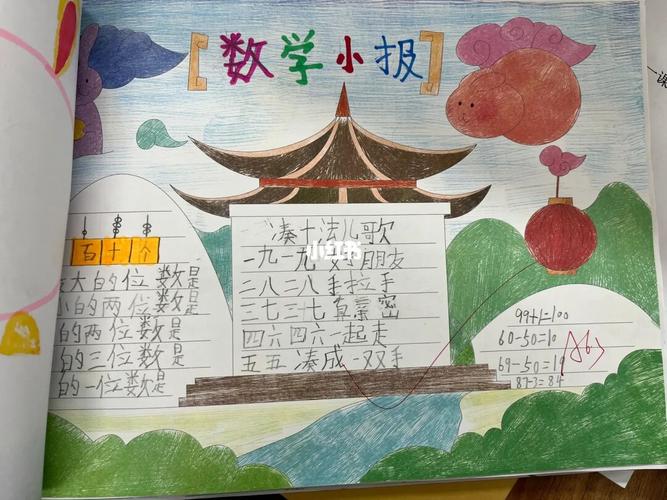 [数学小报]
百十个
大的位数是
小的两位数是
的两位数是
的三位数是
的一位数是
凑十法儿歌
一九一九好朋友
小红书
二八二八手拉手
三七三七真密
四六四六一起走
五五凑成一双手
99+1=100
60-50=10
69-50=19
87-3=84